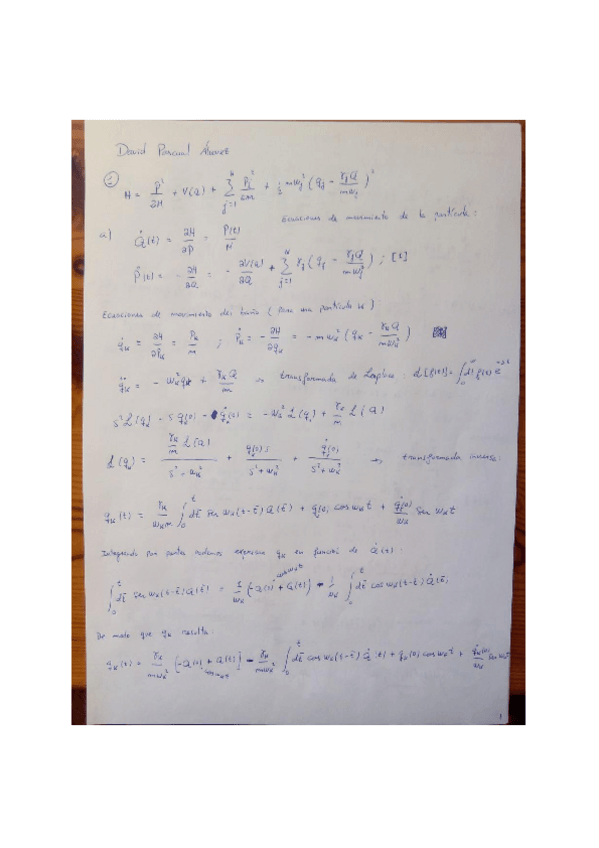 David Pascual Alvarez
① H = P²/2M + V(Q) + Σ_{j=1}^{N} P_j²/2m + ½ mω_j² (q_j - γ_jQ/mω_j²)²
Ecuaciones de movimiento de la partícula:
a) Q̇(t) = ∂H/∂P = P(t)/M
Ṗ(t) = - ∂H/∂Q = - ∂V(Q)/∂Q + Σ_{j=1}^{N} γ_j (q_j - γ_jQ/mω_j²) ; [1]
Ecuaciones de movimiento del baño (para una partícula k):
q̇_k = ∂H/∂P_k = P_k/m ; Ṗ_k = - ∂H/∂q_k = - mω_k² (q_k - γ_kQ/mω_k²)
q̈_k = - ω_k²q_k + γ_kQ/m → transformada de Laplace: L[f(t)] = ∫_0^∞ dt f(t) e^{-st}
s²L(q_k) - s q_k(0) - q̇_k(0) = -ω_k² L(q_k) + γ_k/m L(Q)
L(q_k) = (γ_k/m L(Q))/(s² - ω_k²) + q_k(0) s/(s² + ω_k²) + q̇_k(0)/(s² + ω_k²) → transformada inversa:
q_k(t) = γ_k/ω_km ∫_0^t dt̄ sen ω_k(t-t̄) Q(t̄) + q_k(0) cos ω_kt + q̇_k(0)/ω_k sen ω_kt
Integrando por partes podemos expresar q_k en función de Q̇(t).
∫_0^t dt̄ sen ω_k(t-t̄) Q(t̄) = 1/ω_k (-Q(0) cos ω_kt + Q(t)) - 1/ω_k ∫_0^t dt̄ cos ω_k(t-t̄) Q̇(t̄)
De modo que q_k resulta:
q_k(t) = γ_k/mω_k² [-Q(0) cos ω_kt + Q(t)] - γ_k/mω_k² ∫_0^t dt̄ cos ω_k(t-t̄) Q̇(t) + q_k(0) cos ω_kt + q̇_k(0)/ω_k sen ω_kt
1